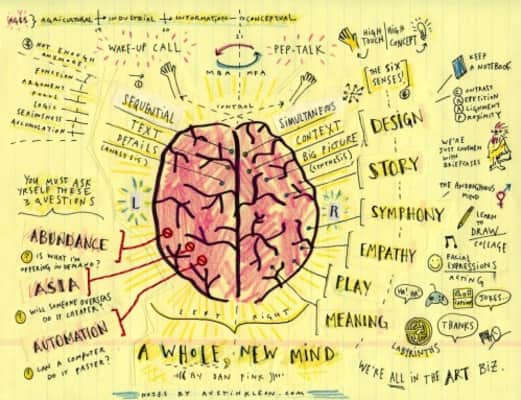 AGES } AGRICULTURAL → INDUSTRIAL → INFORMATION → CONCEPTUAL
WAKE-UP CALL
PEP-TALK
MBA MFA
HIGH TOUCH
HIGH CONCEPT
THE SIX SENSES!
CONTROL
NOT ENOUGH
ANYMORE:
ARGUMENT
LOGIC
SERIOUSNESS
ACCUMULATION
SEQUENTIAL
TEXT
DETAILS
(ANALYSIS)
SIMULTANEOUS
CONTEXT
BIG PICTURE
(SYNTHESIS)
L
R
LEFT RIGHT
YOU MUST ASK
YRSELF THESE
3 QUESTIONS
ABUNDANCE
? IS WHAT I'M
OFFERING IN DEMAND?
ASIA
? WILL SOMEONE OVERSEAS
DO IT CHEAPER?
AUTOMATION
? CAN A COMPUTER
DO IT FASTER?
DESIGN
STORY
SYMPHONY
EMPATHY
PLAY
MEANING
KEEP
A NOTEBOOK
CONTRAST
REPETITION
ALIGNMENT
PROXIMITY
WE'RE
JUST
WITH
BRIEFCASES
THE ANDROGYNOUS
MIND
LEARN
TO
DRAW
COLLAGE
FACIAL
EXPRESSIONS
ACTING
HA! HA!
JOKES...
LABYRINTHS
THANKS
WE'RE ALL IN THE ART BIZ.
A WHOLE NEW MIND
BY DAN PINK
NOTES BY AUSTINKLEON.COM